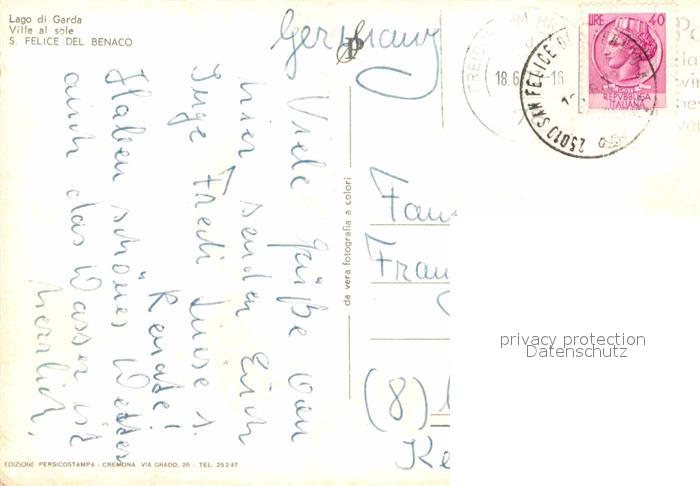 Lago di Garda
Ville al sole
S. FELICE DEL BENACO
Germany
LIRE 40
POSTE
REPVBBLICA
ITALIANA
18.6
-16
25010 SAN FELICE
Viele Grüße von
hier senden Euch
Inge Fredi Luise u.
Renate!
Haben schönes Wetter
auch das Wasser ist
herrlich.
da vera fotografia a colori
Fam
Fran
(8)
Ke
privacy protection
Datenschutz
EDIZIONE PERSICOSTAMPA - CREMONA VIA GRADO, 26 - TEL. 29247